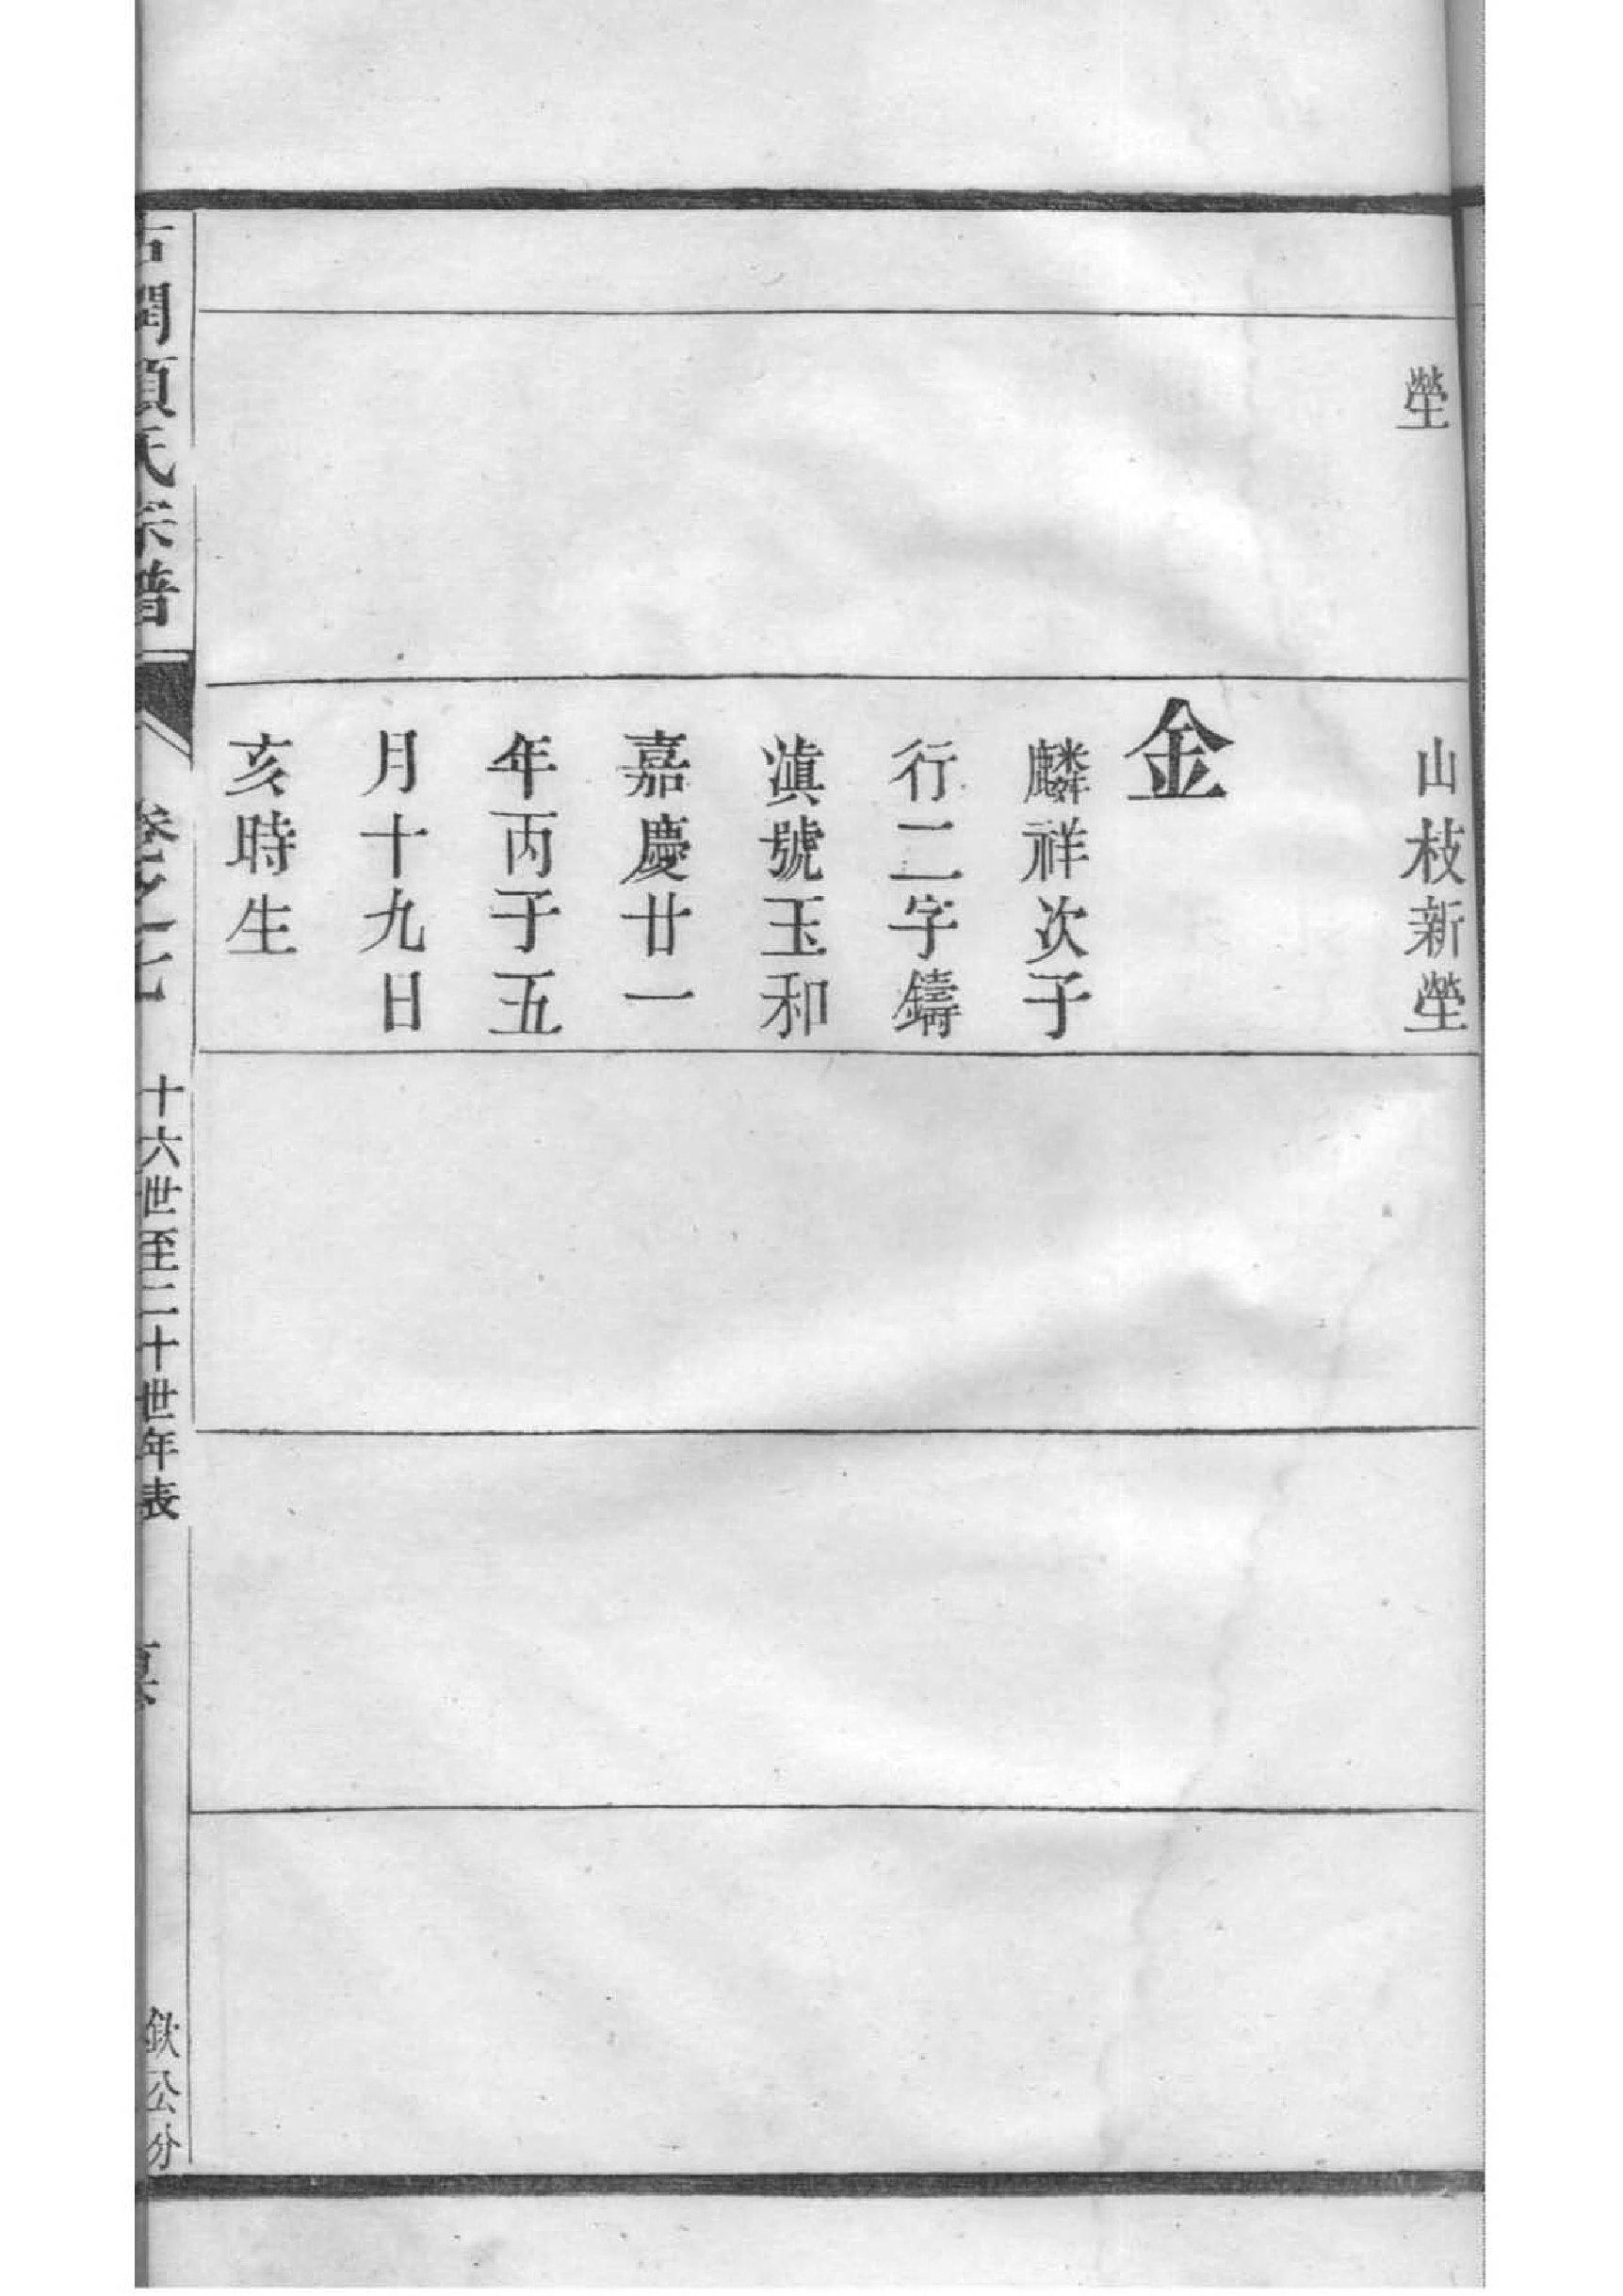 塋
山枝新塋
金
麟祥次子
行二字鑄
滇號玉和
嘉慶廿一
年丙子五
月十九日
亥時生
氏宗譜
十六世至二十世年表
欽公分